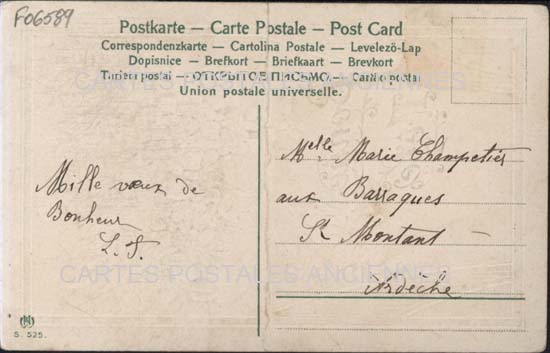 F06589
Postkarte — Carte Postale — Post Card
Correspondenzkarte — Cartolina Postale — Levelező-Lap
Dopisnice — Brefkort — Briefkaart — Brevkort
Tarjeta postal — ОТКРЫТОЕ ПИСЬМО — Cartão postal
Union postale universelle.
CARTES POSTALES ANCIENNES
Mille vœux de
Bonheur
L. S.
Melle Marie Champetier
aux Barraques
St Montant
Ardèche
CARTES POSTALES ANCIENNES
S. 525.